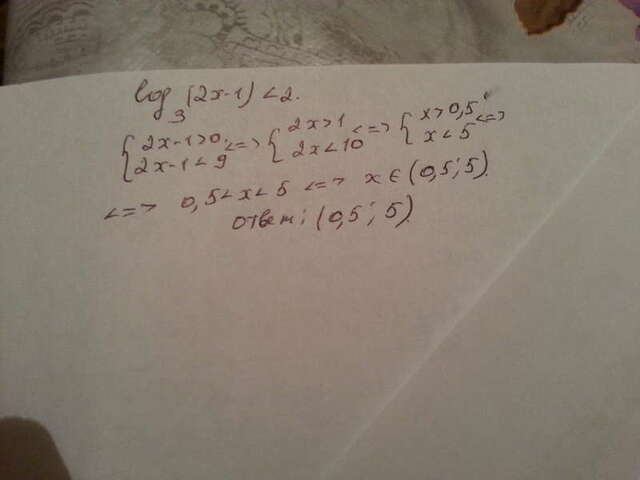 log₃(2x-1) <2.
{2x-1>0, <=> {2x>1 <=> {x>0,5 <=>
{2x-1<9 {2x<10 {x<5
<=> 0,5<x<5 <=> x ∈ (0,5; 5).
ответ: (0,5; 5).